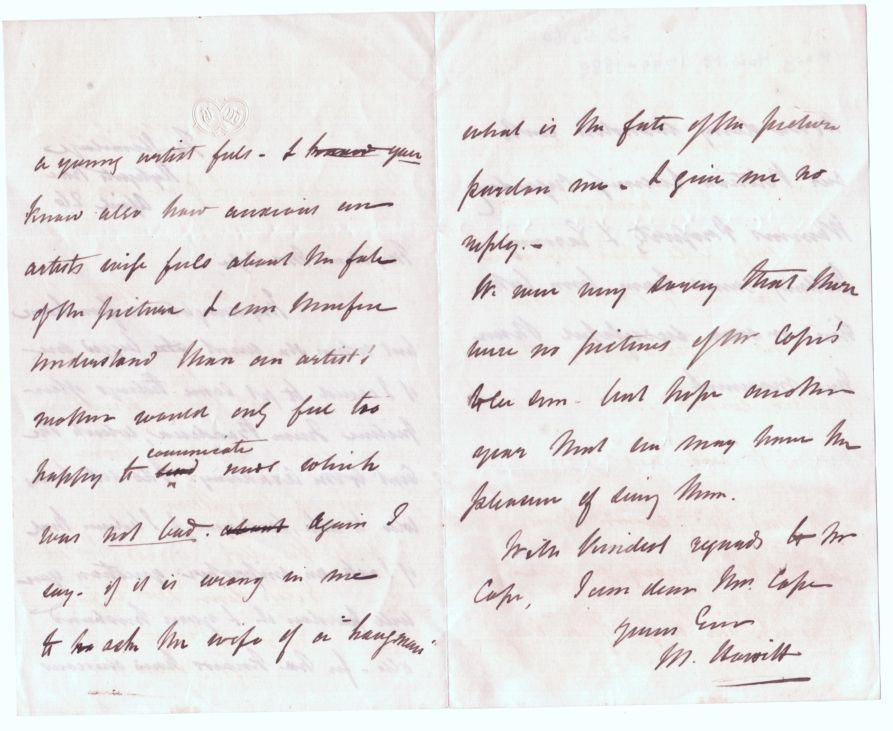 a young artist feels - & know your
know also how anxious an
artists wife feels about the fate
of the picture & can therefore
understand than an artist's
mother would only feel too
communicate
happy to send news which
was not bad. about Again I
say. if it is wrong in me
to ask the wife of a "hangman"
what is the fate of the picture
pardon me - & give me no
reply. -
We were very sorry that there
were no pictures of Mr Cope's
to see - but hope another
year that we may have the
pleasure of seeing them.
With kindest regards to Mr
Cope, I am dear Mrs. Cope
yours Ever
M. Howitt